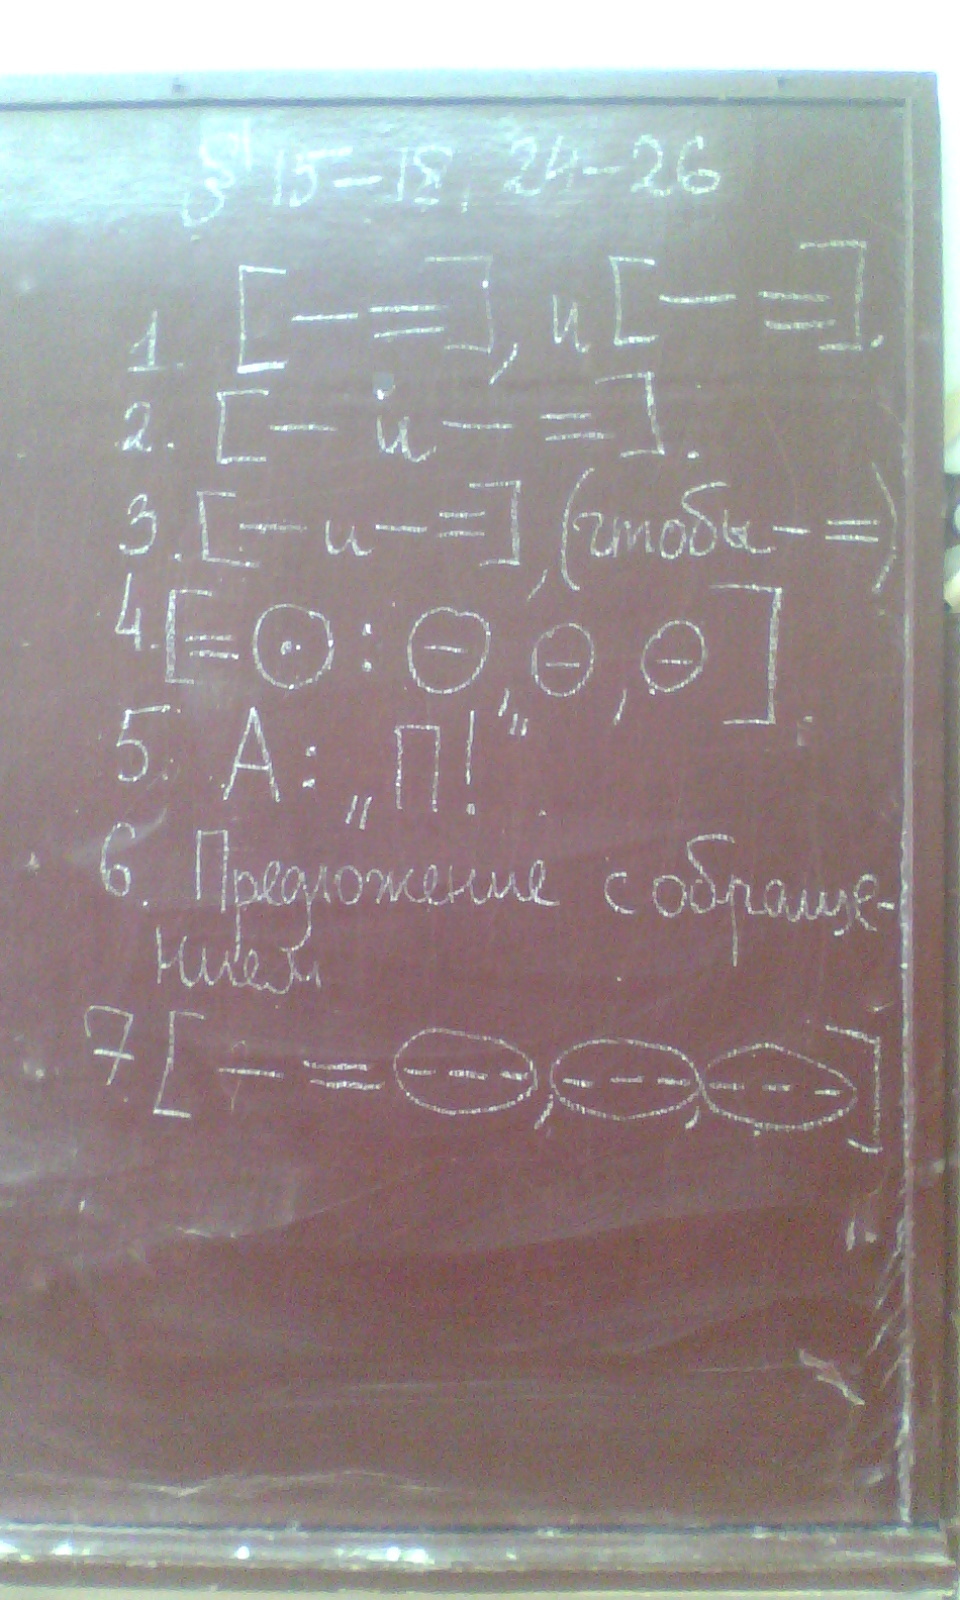 § 15-18, 24-26
1. [— =], и [— =].
2. [— и — =].
3. [— и — =], (чтобы — =)
4. [= ⊙ : ⊖, ⊖, ⊖].
5. А: „П!"
6. Предложение с обраще-
нием
7. [— = (- - -), (- - -), (- - -)]